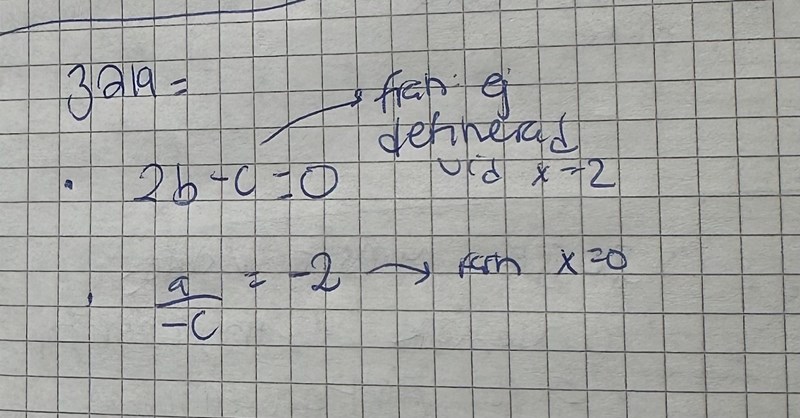 321a =
från: ej
definerad
vid x=2
• 2b-c=0
• a/-c = -2 → från x=0